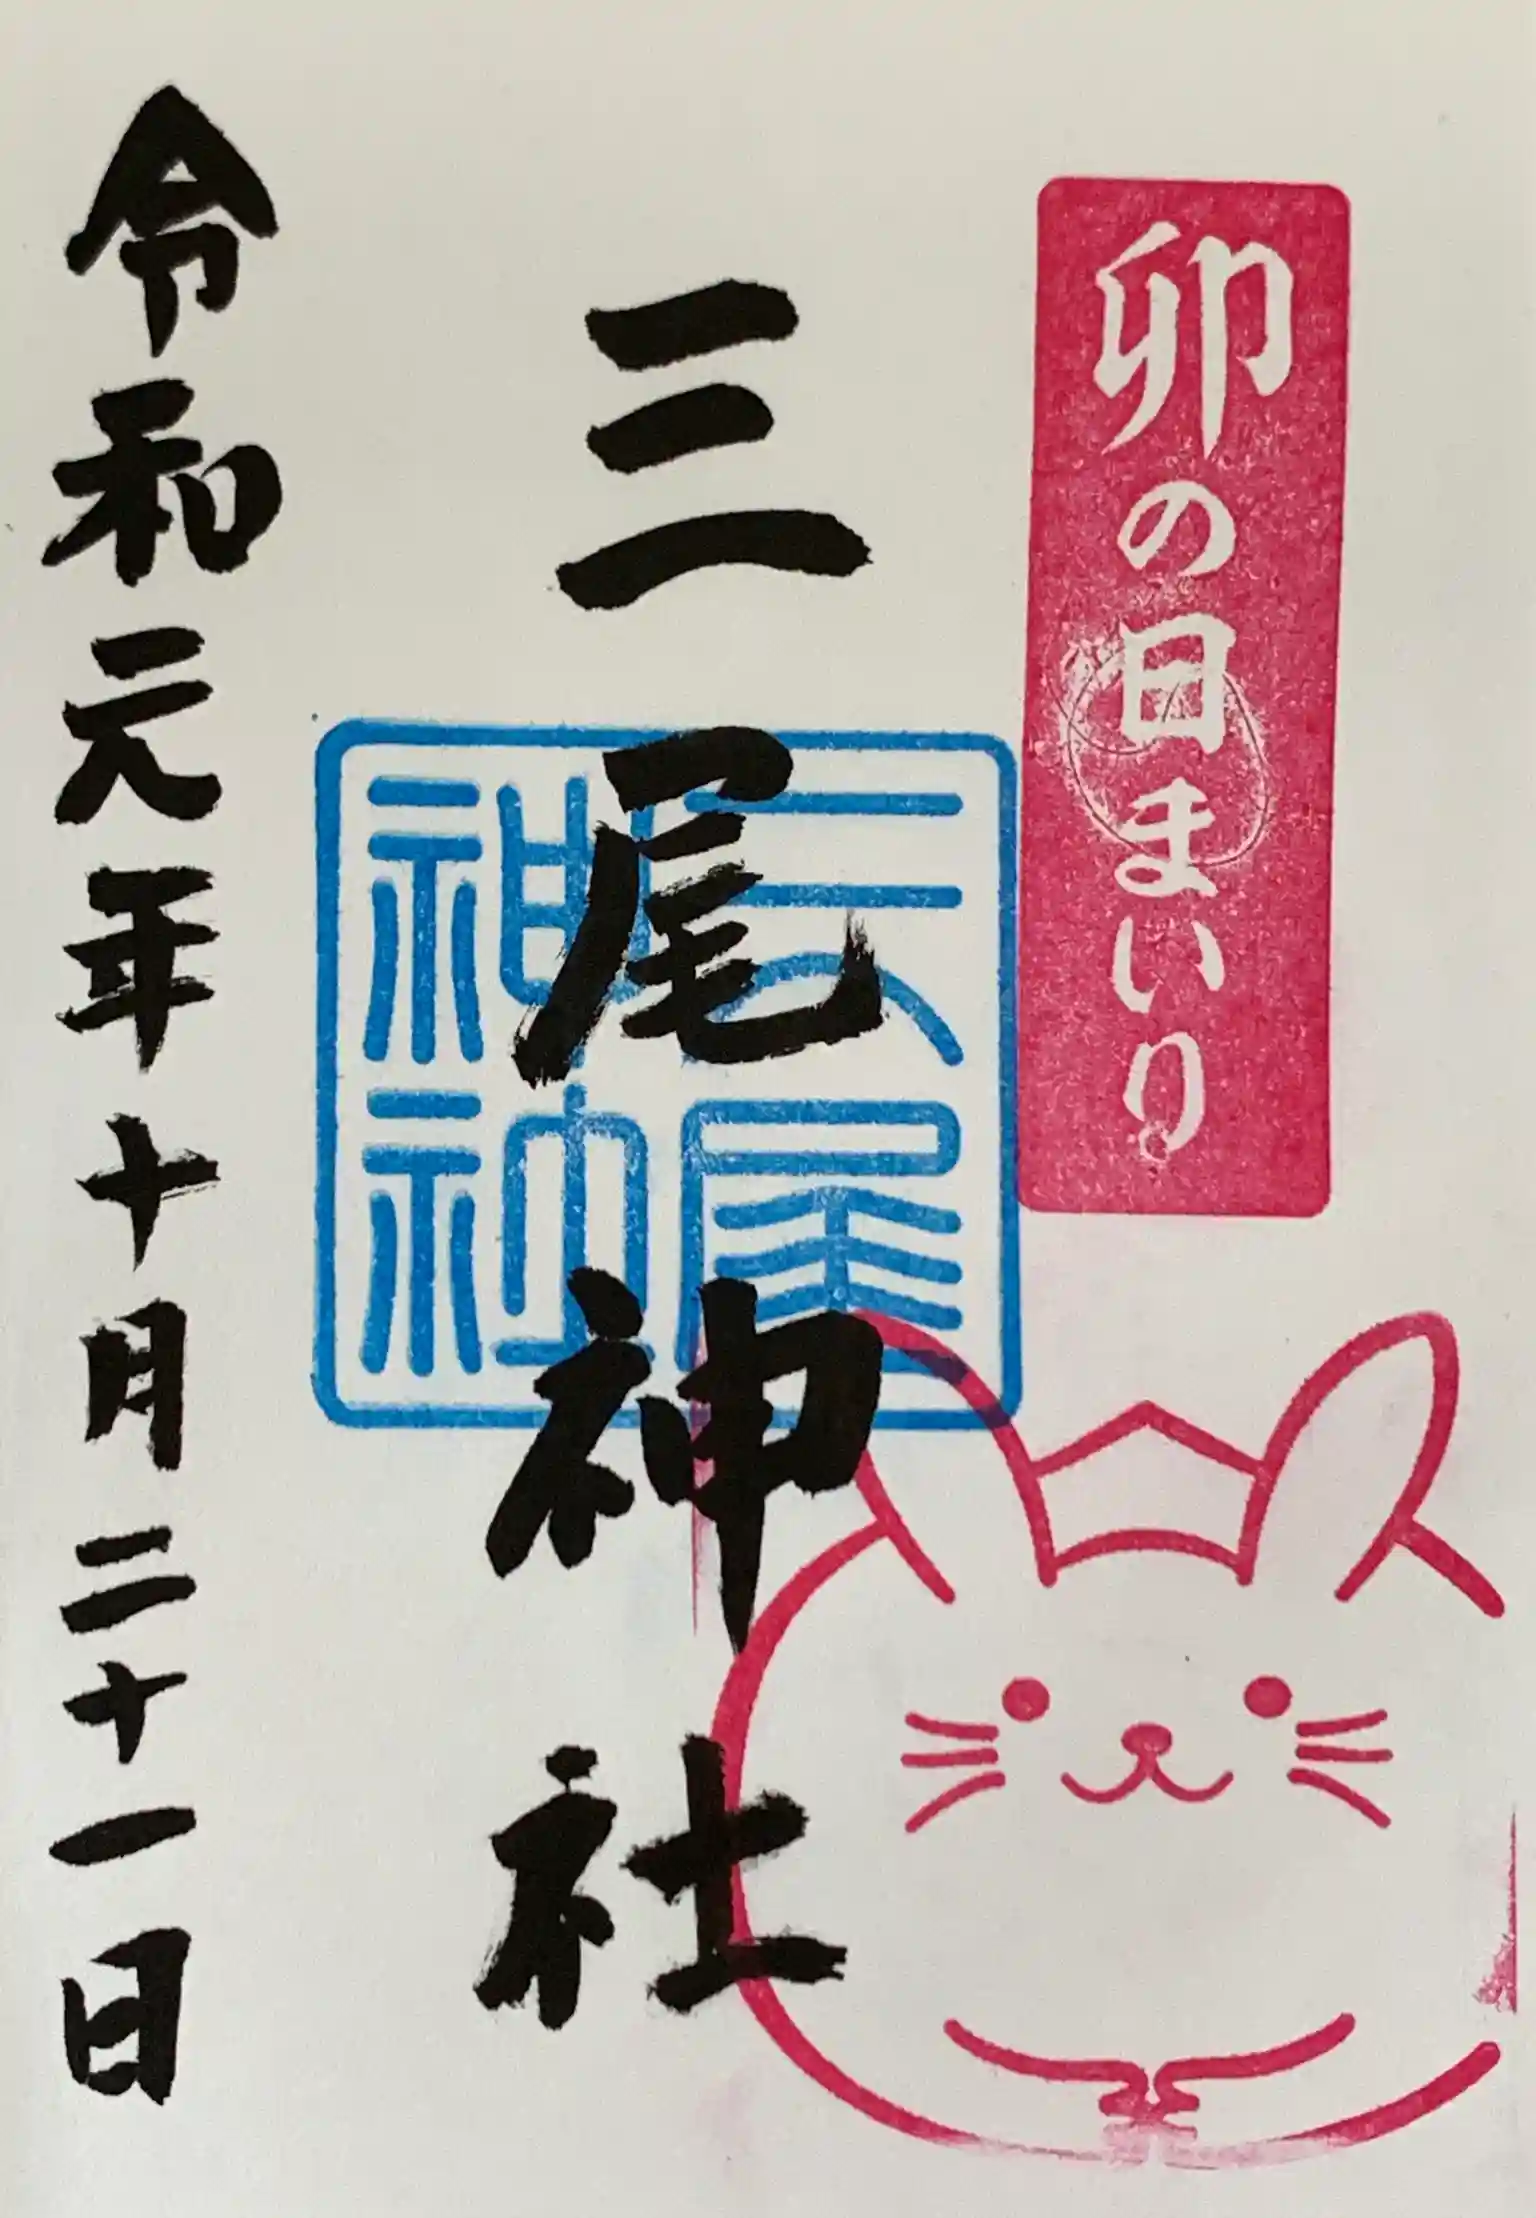 卯の日まいり
三尾神社
三尾神社
令和元年十月二十一日